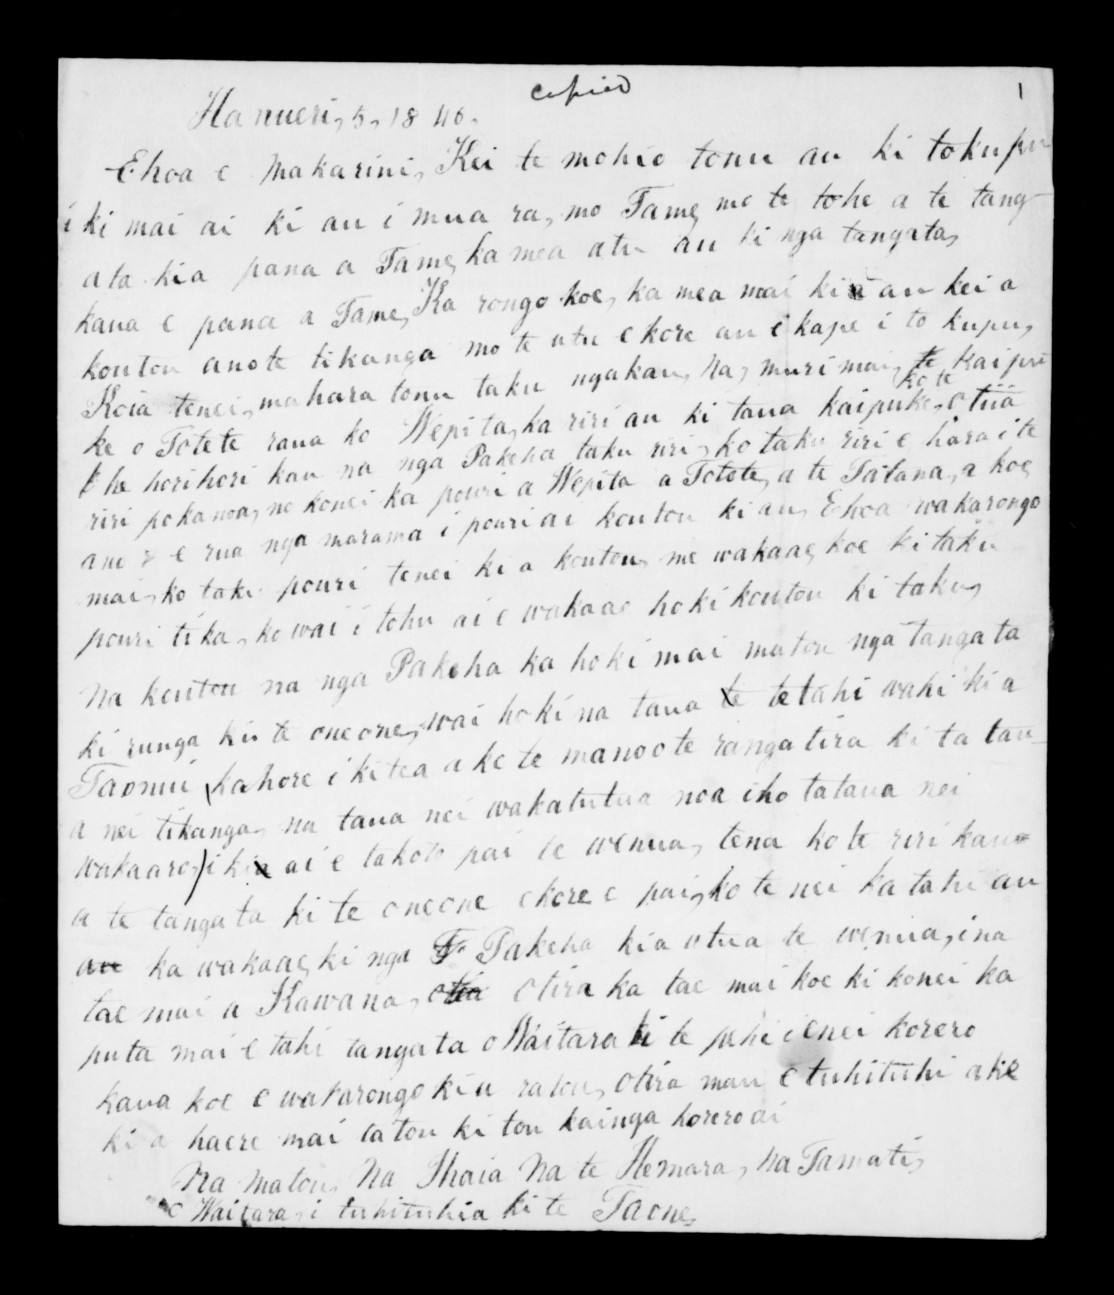 copied
1
Hanueri, 5, 1846.
Ehoa e Makarini, Kei te mohio tonu au ki toku pu
i ki mai ai ki au i mua ra, mo Tame, mo te tohe a te tang
ata kia pana a Tame, ka mea atu au ki nga tangata,
kaua e pana a Tame, Ka rongo koe, ka mea mai ki a au kei a
koutou ano te tikanga mo te utu e kore au e kape i to kupu,
Koia tenei, mahara tonu taku ngakau, Na, muri mai, te kaipu
ke o Totete raua ko Wepiha, ka riri au ki taua kaipuke, otiia
ko te
he horihori kau na nga Pakeha taku riri, ko taku riri e hara i te
riri pokanoa, no konei ka pouri a Wepiha a Totete, a te Tatana, a koe,
ano e rua nga marama i pouri ai koutou ki au, Ehoa wakarongo
mai, ko taku pouri tenei ki a koutou, me wakaae, koe ki taku
pouri tika, ko wai i tohu ai e wakaae hoki koutou ki taku,
Na koutou na nga Pakeha ka hoki mai matou nga tangata
ki runga ki te oneone, wai hoki na taua te tetahi wahi ki a
Taonui, kahore i kitea ake te manoo te rangatira ki ta tau
a nei tikanga, na taua nei wakatutua noa iho tataua nei
wakaaro, i kia ai e takoto pai te wenua, tena ko te riri kau
a te tangata ki te oneone ekore e pai, ko te nei ka tahi au
au ka wakaae, ki nga Pakeha kia utua te wenua, ina
tae mai a Kawana, otia otira ka tae mai koe ki konei ka
puta mai e tahi tangata o Waitara ki te pehi i enei korero
kaua koe e wakarongo ki a ratou, otira mau e tuhituhi ake
ki a haere mai tatou ki tou kainga korero ai
Na matou, Na Ihaia Na te Hemara, Na Tamati,
o Waitara, i tuhituhia ki te Taone,